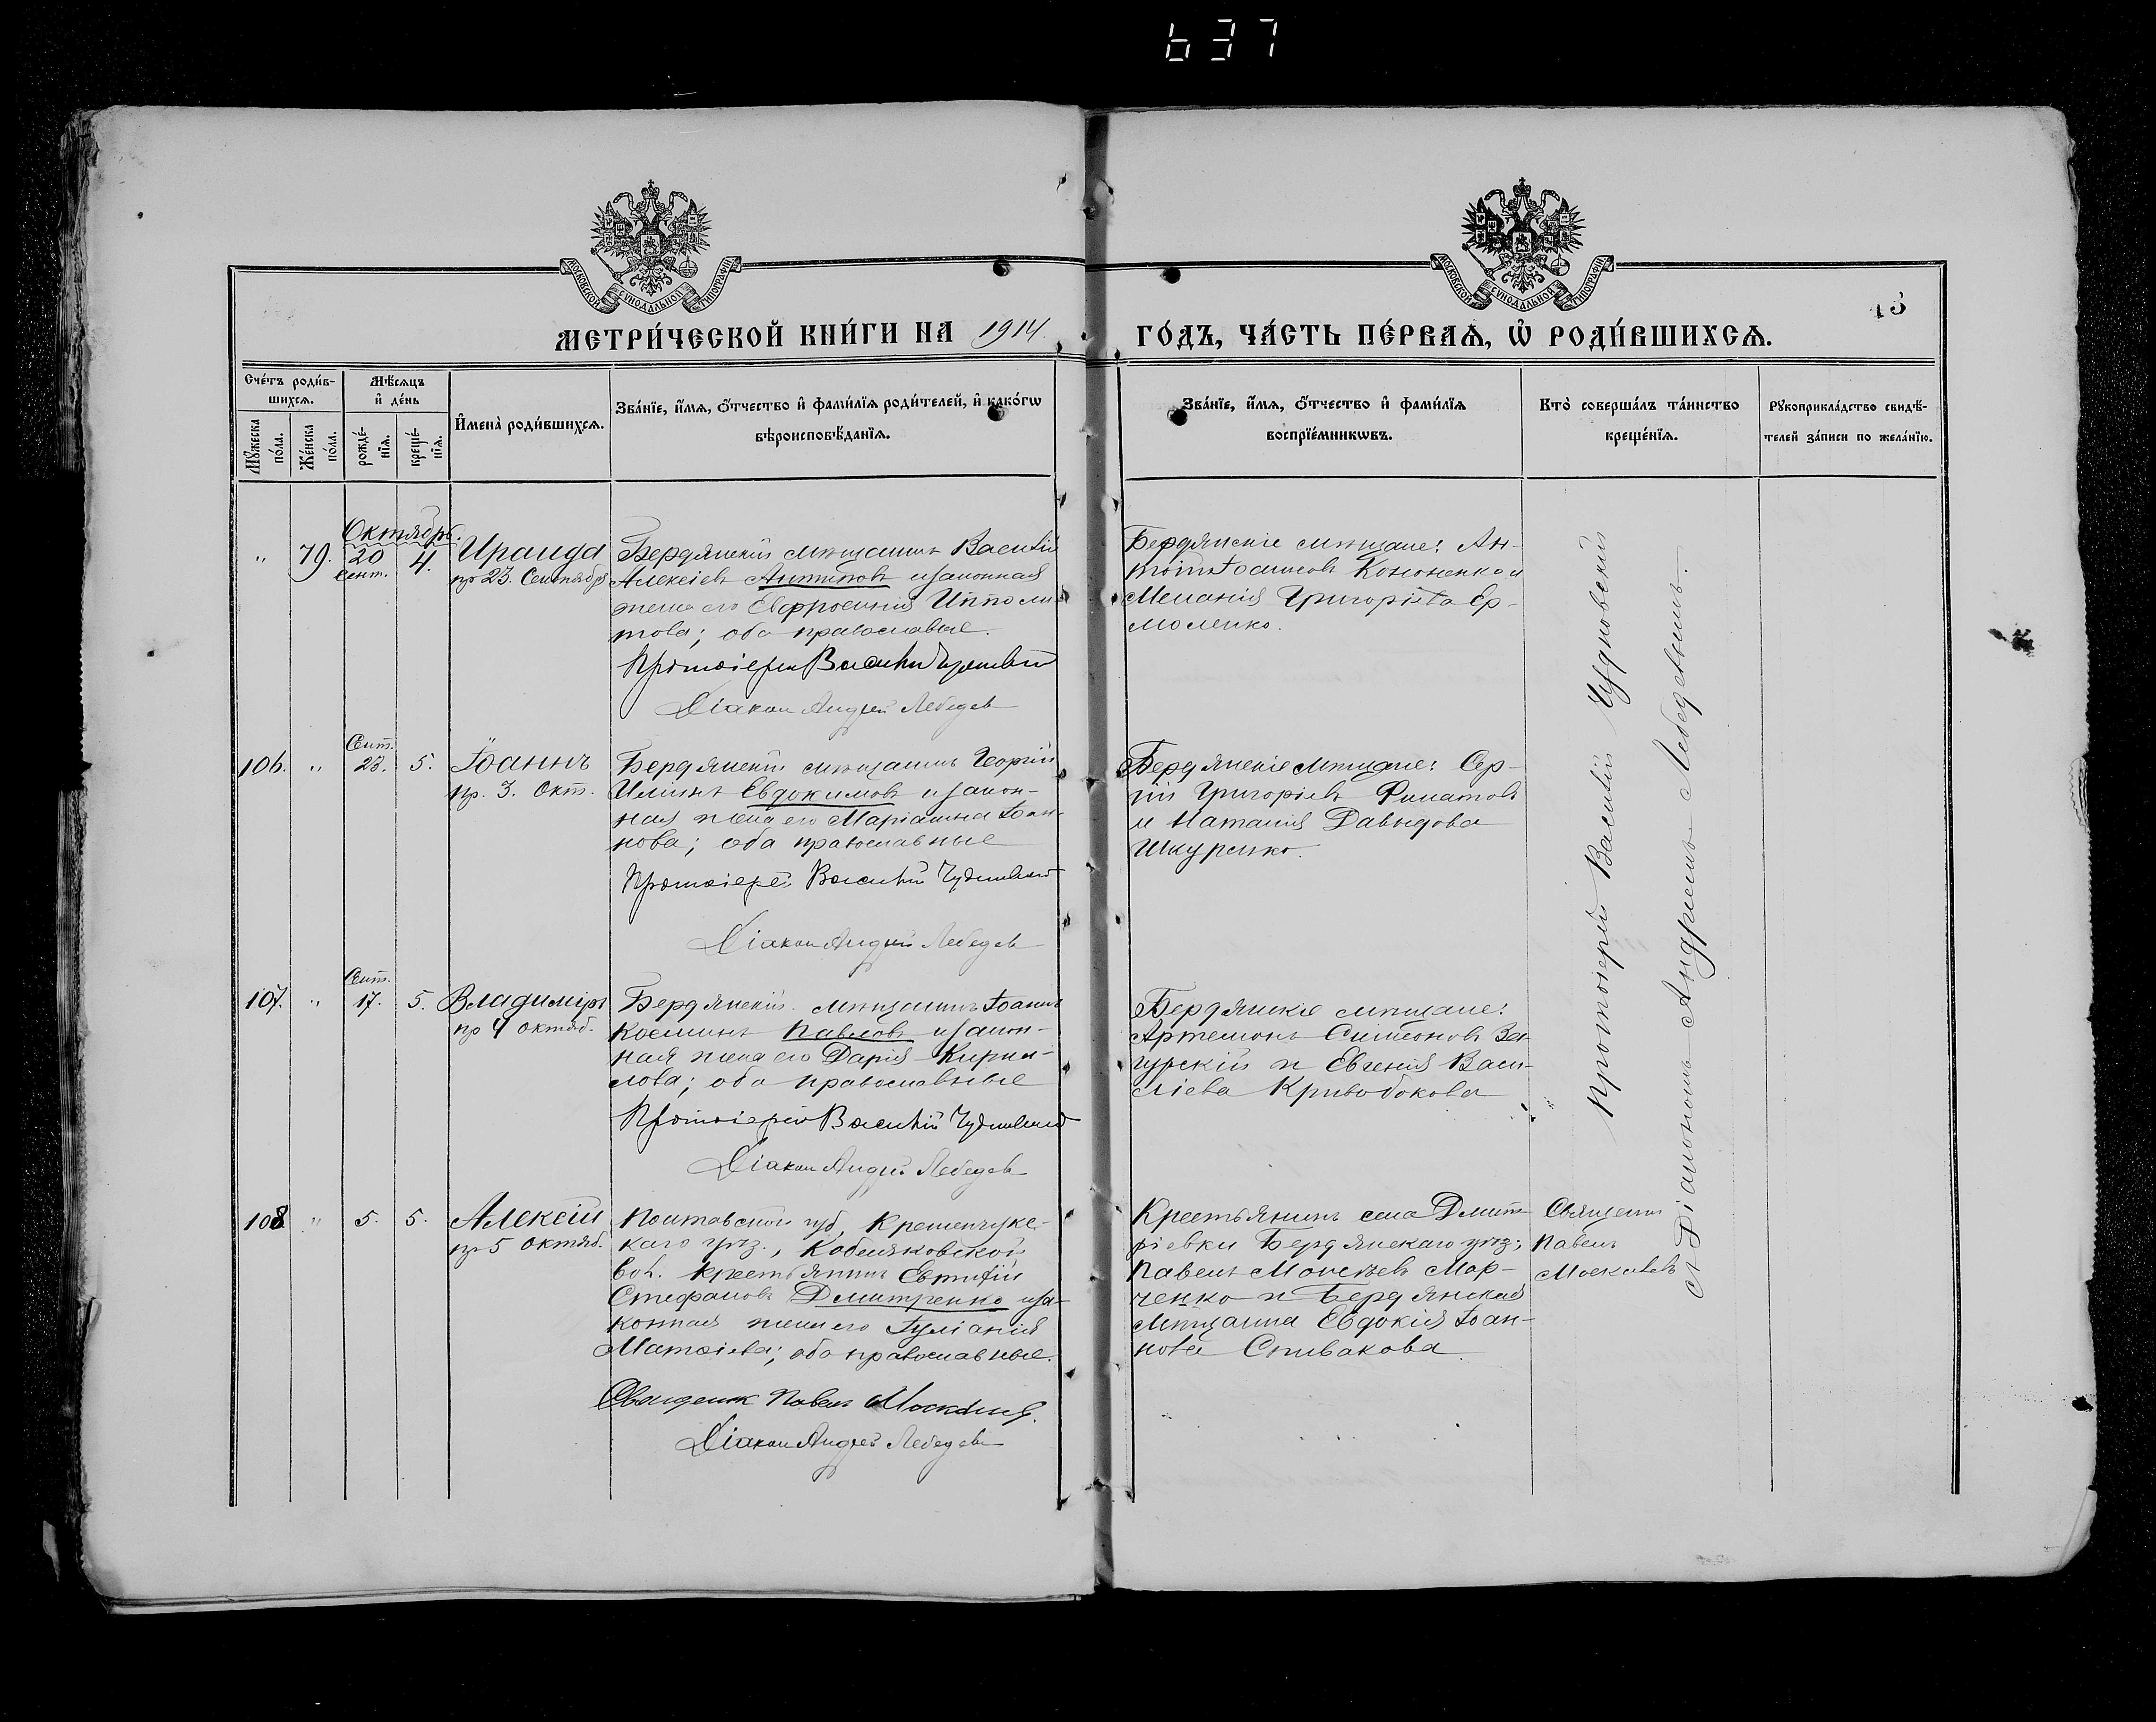 637
МОСКОВСКОЙ СѴНОДАЛЬНОЙ ТИПОГРАФІИ
МОСКОВСКОЙ СѴНОДАЛЬНОЙ ТИПОГРАФІИ
13
МЕТРИ́ЧЕСКОЙ КНИ́ГИ НА 1914
ГО́ДЪ, ЧА́СТЬ ПЕ́РВАѦ, Ѽ РОДИ́ВШИХСѦ.
Сче́тъ роди́в-
шихсѧ.
Мꙋ́жеска
по́ла.
Же́нска
по́ла.
Мѣ́сѧцъ
и҆ де́нь
рожде́-
нїѧ.
креще́-
нїѧ.
И҆мена̀ роди́вшихсѧ.
Зва́нїе, и҆́мѧ, ѻ҆́тчество и҆ фами́лїѧ роди́телей, и҆ како́гѡ
вѣроисповѣ́данїѧ.
Зва́нїе, и҆́мѧ, ѻ҆́тчество и҆ фами́лїѧ
воспрїе́мникѡвъ.
Кто̀ соверша́лъ та́инство
креще́нїѧ.
Рꙋкоприкла́дство свидѣ́-
телей за́писи по жела́нїю.
Октябрь.
" 79. 20 4. Ираида
Сент.
пр 23. Сентября
Бердянскій мѣщанинъ Василій
Алексіевъ Антиповъ и законная
жена его Евфросинія Ипполи-
това; оба православные.
Протоіерей Василій Чудновскій
Діаконъ Андрей Лебедевъ
Бердянскіе мѣщане: Ан-
тоній Іоанновъ Кононенко и
Меланія Григоріева Ер-
моленко.
Сент.
106. " 23. 5. Іоаннъ
пр. 3. Окт.
Бердянскій мѣщанинъ Георгій
Илиинъ Евдокимовъ и закон-
ная жена его Маріанна Іоан-
нова; оба православные
Протоіерей Василій Чудновскій
Діаконъ Андрей Лебедевъ
Бердянскіе мѣщане: Сер-
гій Григоріевъ Филатовъ
и Наталія Давыдова
Шкуренко.
Сент.
107. " 17. 5. Владиміръ
пр 4 октяб.
Бердянскій мѣщанинъ Іоаннъ
Косминъ Павловъ и закон-
ная жена его Дарія Кирил-
лова; оба православные
Протоіерей Василій Чудновскій
Діаконъ Андрей Лебедевъ
Бердянскіе мѣщане:
Артемонъ Симеоновъ За-
гурскій и Евгенія Васи-
ліева Кривобокова
Протоіерей Василій Чудновскій
съ Діакономъ Андреемъ Лебедевымъ.
108 " 5. 5. Алексій
пр 5 октяб.
Полтавской губ, Кременчугс-
каго уѣз., Кобеляковской
вол. крестьянинъ Евтихій
Стефановъ Дмитренко и за-
конная жена его Іуліанія
Матѳіева; оба православные.
Священник Павел Московъ
Діаконъ Андрей Лебедевъ
Крестьянинъ села Дмит-
ріевки Бердянскаго уѣз;
Павелъ Моисеевъ Мар-
ченко и Бердянская
мѣщанка Евдокія Іоан-
нова Спивакова
Священ
Павелъ